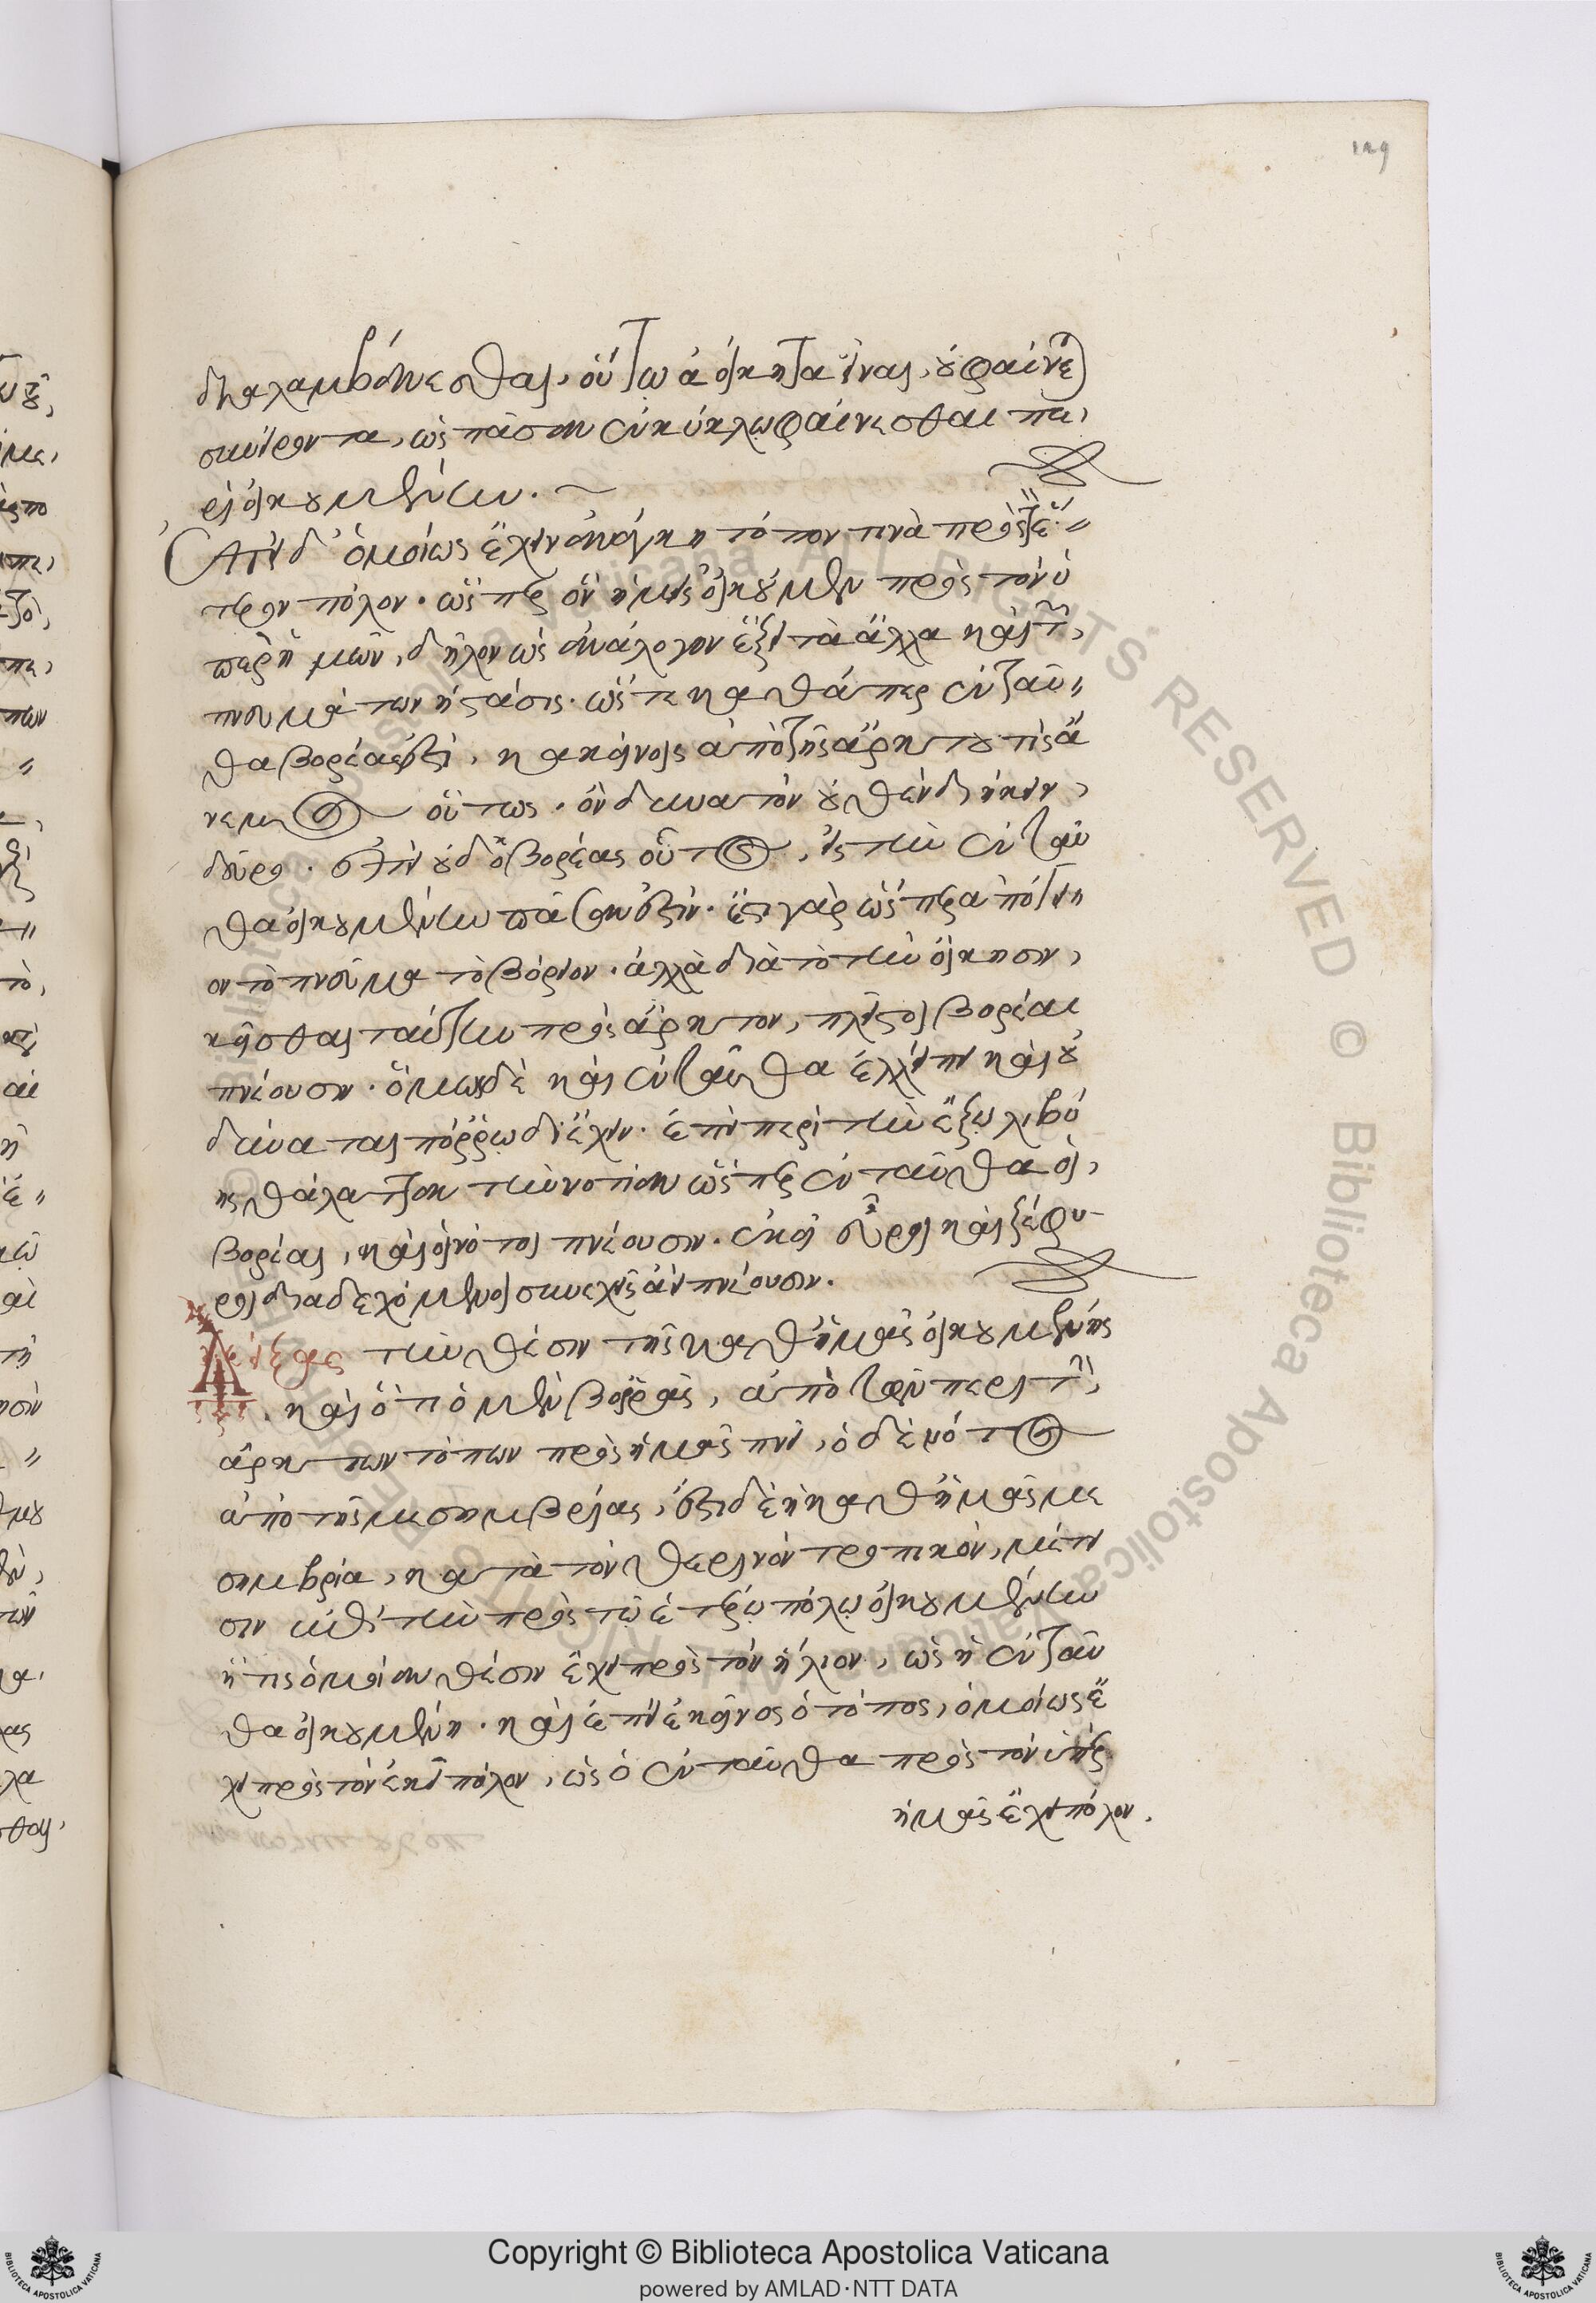 διαλαμβάνεσθαι, οὕτω ἀοίκητα εἶναι, οὐ φαίνεται
σκιύροντα, ὡς πᾶσαν ἐν κύκλῳ φαίνεσθαι πε,
ριοικουμένην.
Ἐπεὶ δ' ὁμοίως ἔχειν ἀνάγκη τόπον τινὰ πρὸς τὸν ἕ
τερον πόλον. ὥσπερ ὃν ἡμεῖς οἰκοῦμεν πρὸς τὸν ὑ
περ ἡμῶν, δῆλον ὡς ἀνάλογον ἕξει τὰ ἄλλα καὶ τῶν,
πνευμάτων ἡ στάσις. ὥστε καθάπερ ἐνταῦ
θα βορέας ἐστὶ, κἀκείνοις ἀπὸ τῆς ἄρκτου τὶς ἄ
νεμος οὕτως. ὃν δυνατὸν οὐθὲν διήκειν,
δεῦρο. ἐπεὶ οὐδ' ὁ βορέας οὗτος, εἰς τὴν ἐνταῦ
θα οἰκουμένην πᾶσαν ἐστίν. ἔστι γὰρ ὥσπερ ἀπόγει
ον τὸ πνεῦμα τὸ βόρειον. ἀλλὰ διὰ τὸ τὴν οἴκησιν,
κεῖσθαι ταύτην πρὸς ἄρκτον, πλεῖστοι βορέαι
πνέουσιν. ὅμως δὲ καὶ ἐνταῦθα ἐλλείπει καὶ οὐ
δύναται πόρρω διέχειν. ἐπεὶ περὶ τὴν ἔξω λιβύ
ης θάλατταν τὴν νοτίαν ὥσπερ ἐνταῦθα οἱ,
βορέαι, καὶ οἱ νότοι πνέουσιν. ἐκεῖ εὖροι καὶ ζέφυ
ροι διαδεχόμενοι συνεχεῖς ἀεὶ πνέουσιν.
Δείξας τὴν θέσιν τῆς καθ' ἡμᾶς οἰκουμένης
, καὶ ὅτι ὁ μὲν βορρᾶς, ἀπὸ τῶν περὶ τὴν,
ἄρκτων τόπων πρὸς ἡμᾶς πνεῖ, ὁ δὲ νότος
ἀπὸ τῆς μεσημβρίας, ἔστι δὲ ἡ καθ' ἡμᾶς με
σημβρία, κατὰ τὸν θερινὸν τροπικὸν, μέτει
σιν εἰς τὴν πρὸς τῷ ἑτέρῳ πόλῳ οἰκουμένην
ἥτις ὁμοίαν θέσιν ἔχει πρὸς τὸν ἥλιον, ὡς ἡ ἐνταῦ
θα οἰκουμένη. καὶ ἐπεὶ ἐκεῖνος ὁ τόπος, ὁμοίως ἔ
χει πρὸς τὸν ἐκεῖ πόλον, ὡς ὁ ἐνταῦθα πρὸς τὸν ὑπὲρ
ἡμᾶς ἔχει πόλον.
Copyright © Biblioteca Apostolica Vaticana
powered by AMLAD·NTT DATA